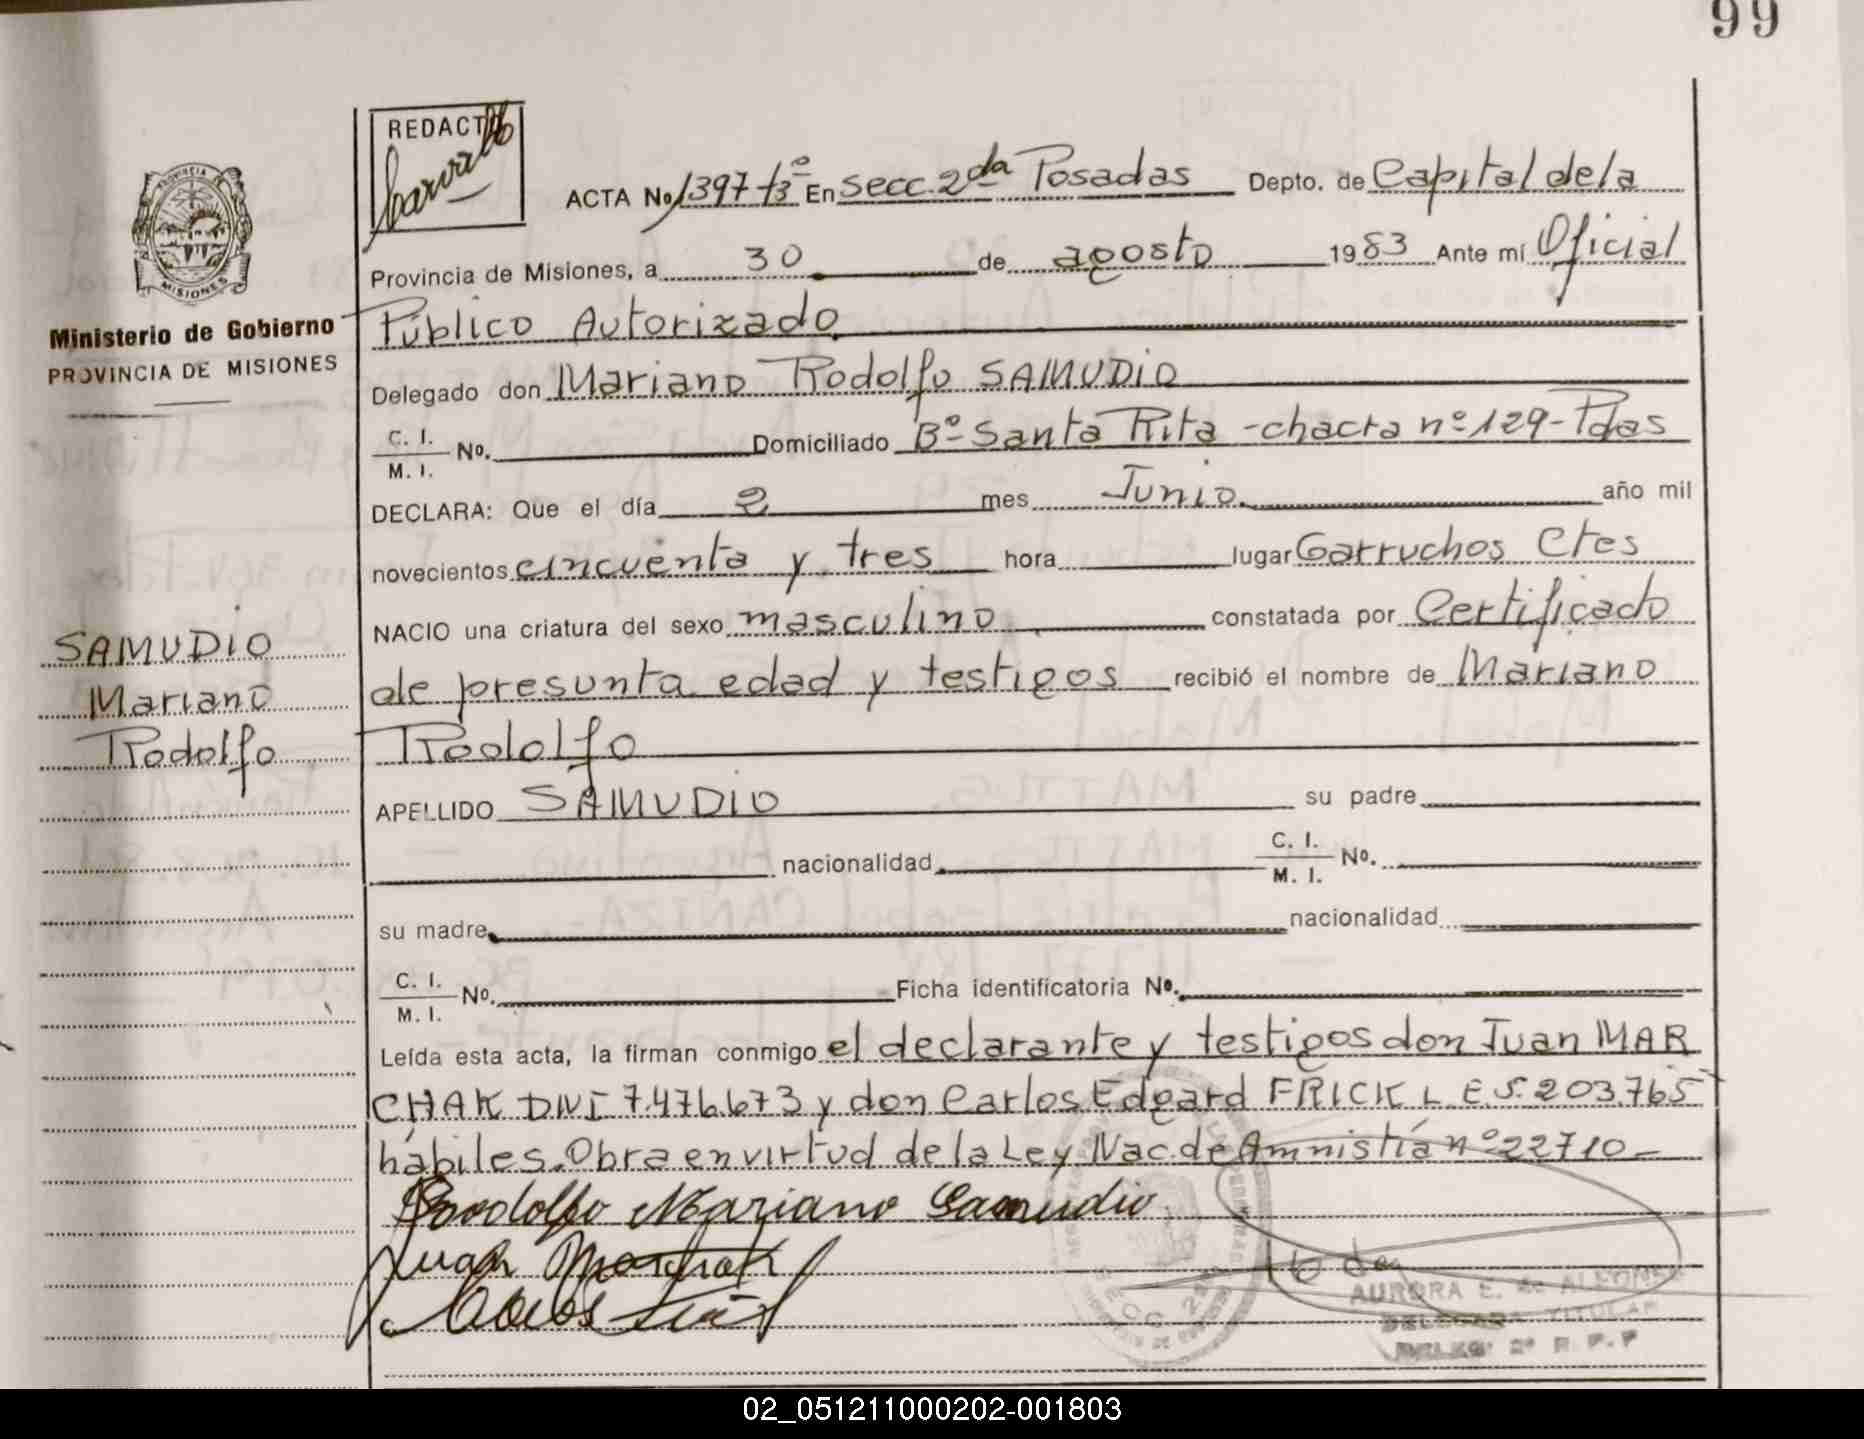 99
REDACTO
PROVINCIA DE
MISIONES
Ministerio de Gobierno
PROVINCIA DE MISIONES
ACTA No 1397 tº3 En Secc. 2da Posadas Depto. de Capital de la
Provincia de Misiones, a 30 de agosto 1983 Ante mí Oficial
Público Autorizado
Delegado don Mariano Rodolfo SAMUDIO
C. I.
M. I. No. Domiciliado Bº Santa Rita - chacra nº 129 - Pdas
DECLARA: Que el día 2 mes Junio año mil
novecientos cincuenta y tres hora lugar Garruchos Ctes
NACIO una criatura del sexo masculino constatada por Certificado
de presunta edad y testigos recibió el nombre de Mariano
Rodolfo
APELLIDO SAMUDIO su padre
nacionalidad C. I.
M. I. No.
su madre nacionalidad
C. I.
M. I. No. Ficha identificatoria No.
Leída esta acta, la firman conmigo el declarante y testigos don Juan MAR
CHAK DNI 7.476.673 y don Carlos Edgard FRICK L.E. 5.203.765
hábiles. Obra en virtud de la Ley Nac. de Amnistía nº 22710-
SAMUDIO
Mariano
Rodolfo
Rodolfo Mariano Samudio
Juan Marchak
SECC 2da
AURORA E. de
DELEGADA TITULAR
02_051211000202-001803